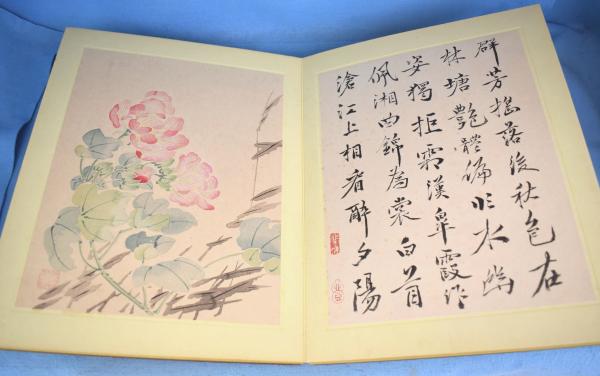 群芳搖落後秋色在
林塘艷體偏臨水幽
姿獨拒霜漢皋霞作
佩湘曲錦為裳白首
滄江上相看醉夕陽